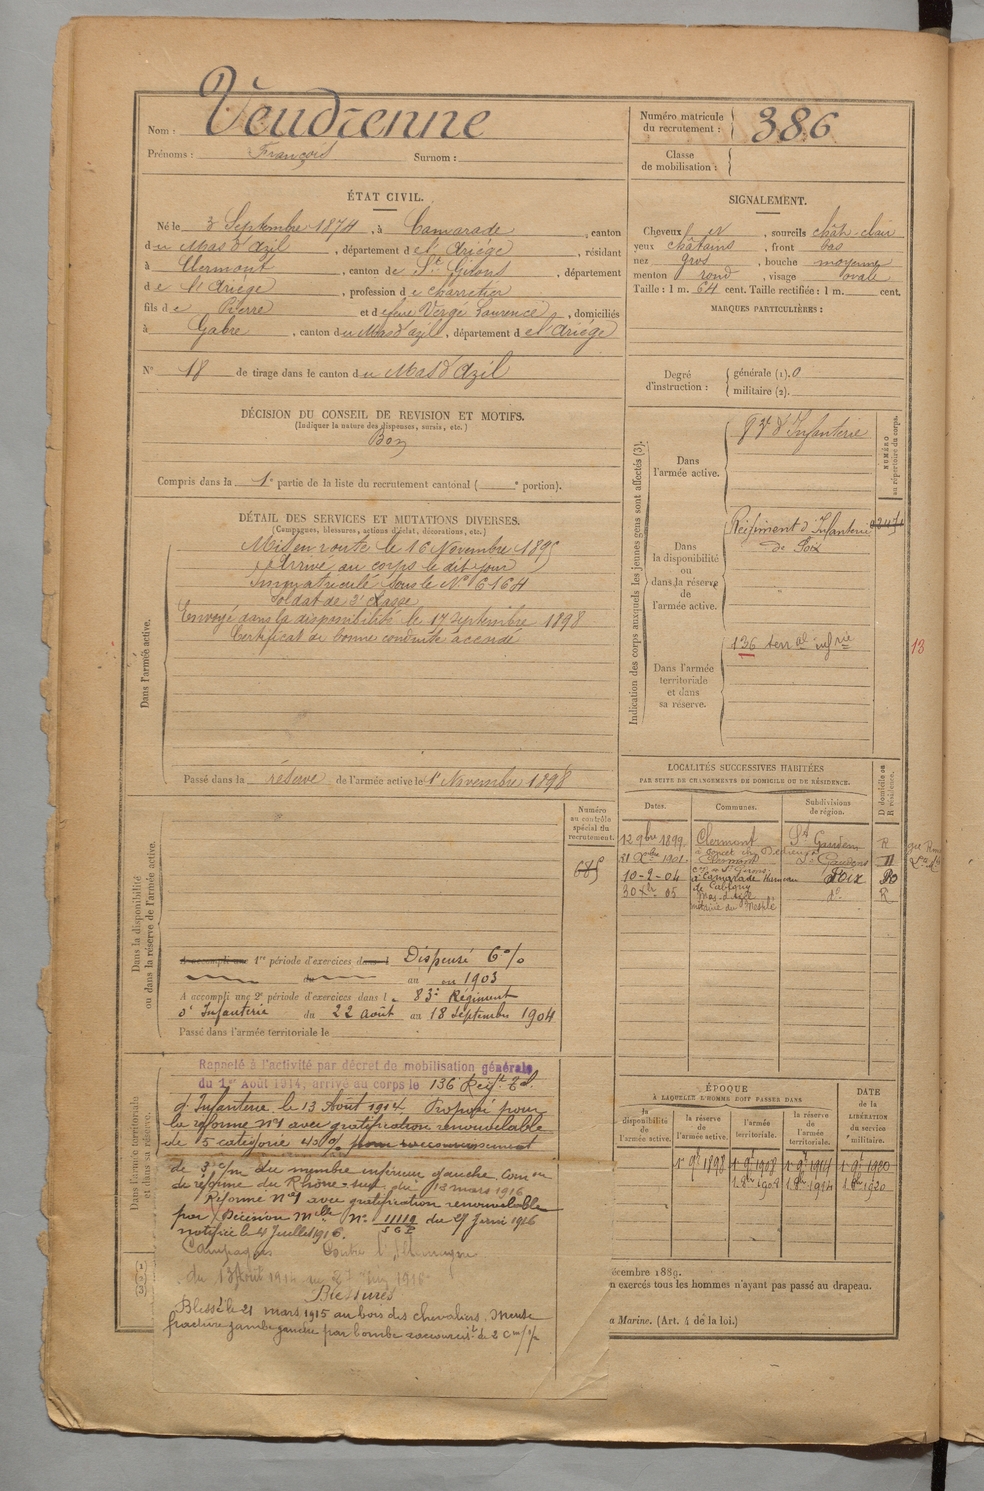 Nom : Vendrenne
Prénoms : François Surnom :
Numéro matricule du recrutement : 386
Classe de mobilisation :
ÉTAT CIVIL.
Né le 3 Septembre 1874, à Camarade, canton
du Mas d'Azil, département de l'Ariège, résidant
à Clermont, canton de St Girons, département
de l'Ariège, profession de charretier
fils de Pierre et de feue Vergé Laurence, domiciliés
à Gabre, canton du Mas d'azil, département de l'Ariège
N° 18 de tirage dans le canton du Mas d'Azil
SIGNALEMENT.
Cheveux et, sourcils chât-clair
yeux châtains, front bas
nez gros, bouche moyenne
menton rond, visage ovale
Taille : 1 m. 64 cent. Taille rectifiée : 1 m. cent.
MARQUES PARTICULIÈRES :
Degré d'instruction : générale (1). 0
militaire (2).
DÉCISION DU CONSEIL DE REVISION ET MOTIFS.
(Indiquer la nature des dispenses, sursis, etc.)
Bon
Compris dans la 1e partie de la liste du recrutement cantonal ( e portion).
DÉTAIL DES SERVICES ET MUTATIONS DIVERSES.
(Campagnes, blessures, actions d'éclat, décorations, etc.)
Dans l'armée active.
Mis en route le 16 Novembre 1895
Arrivé au corps le dit jour
Immatriculé sous le N° 6164
Soldat de 2e classe
Envoyé dans la disponibilité le 17 septembre 1898
Certificat de bonne conduite accordé
Passé dans la réserve de l'armée active le 1er Novembre 1898
Indication des corps auxquels les jeunes gens sont affectés (3).
NUMÉRO au répertoire du corps.
Dans l'armée active.
d'Infanterie
Dans la disponibilité ou dans la réserve de l'armée active.
Régiment d'Infanterie
de Foix
Dans l'armée territoriale et dans sa réserve.
136 terral infrie
13
LOCALITÉS SUCCESSIVES HABITÉES
PAR SUITE DE CHANGEMENTS DE DOMICILE OU DE RÉSIDENCE.
D domicile ou R résidence.
Dates. Communes. Subdivisions de région.
12 9bre 1899 Clermont St Gaudens R
21 Xbre 1901 Clermont St Gaudens
10-2-04 Camarade Hameau Foix
30 Xbre 05 Mas-d'Azil do R
Dans la disponibilité ou dans la réserve de l'armée active.
Numéro au contrôle spécial du recrutement.
685
A accompli une 1re période d'exercices dans l Dispensé 6%
du au en 1903
A accompli une 2e période d'exercices dans le 83e Régiment
d'Infanterie du 22 août au 18 septembre 1904
Passé dans l'armée territoriale le
Dans l'armée territoriale et dans sa réserve.
Rappelé à l'activité par décret de mobilisation générale
du 1er Août 1914, arrivé au corps le 136 Regt Tal
d'Infanterie le 13 Août 1914. Proposé pour
la réforme n°1 avec gratification renouvelable
de 5 catégorie 40% pour raccourcissement
de 3 c/m du membre inférieur gauche. Comon
de réforme du Rhône-sud du 13 mars 1916
Réformé n°1 avec gratification renouvelable
par Décision Mlle N° du Juin 1916
notifiée le 4 Juillet 1916.
Campagnes Contre l'Allemagne
du 13 Août 1914 au
Blessures
Blessé le 21 mars 1915 au bois des chevaliers. Meuse
fracture jambe gauche par bombe raccourcist de 2 cm 1/2
ÉPOQUE
À LAQUELLE L'HOMME DOIT PASSER DANS
DATE de la LIBÉRATION du service militaire.
la disponibilité de l'armée active. la réserve de l'armée active. l'armée territoriale. la réserve de l'armée territoriale.
1er 9bre 1898 1er 9bre 1908 1er 9bre 1914 1er 9bre 1920
1 8bre 1908 1 8bre 1914 1 8bre 1920
décembre 1889.
on exercés tous les hommes n'ayant pas passé au drapeau.
a Marine. (Art. 4 de la loi.)